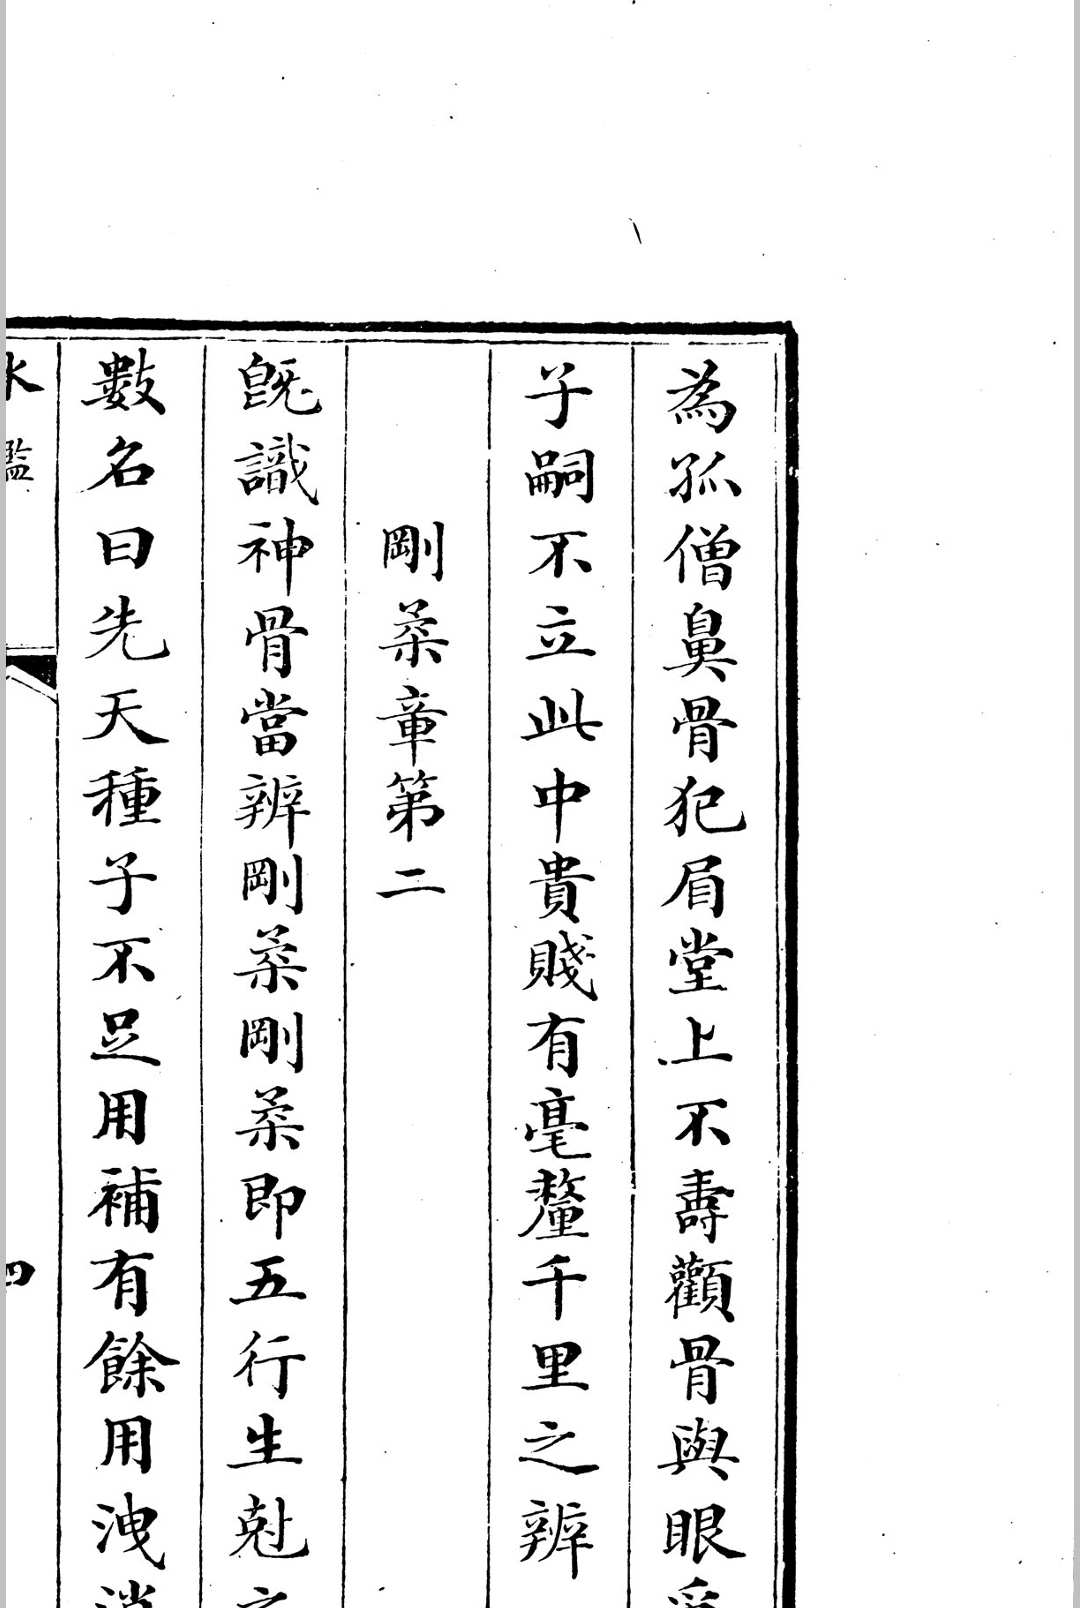 為孤僧鼻骨犯眉堂上不壽顴骨與眼爭
子嗣不立此中貴賤有毫釐千里之辨
剛柔章第二
旣識神骨當辨剛柔剛柔即五行生尅之
數名曰先天種子不足用補有餘用洩消
氷鑑
四